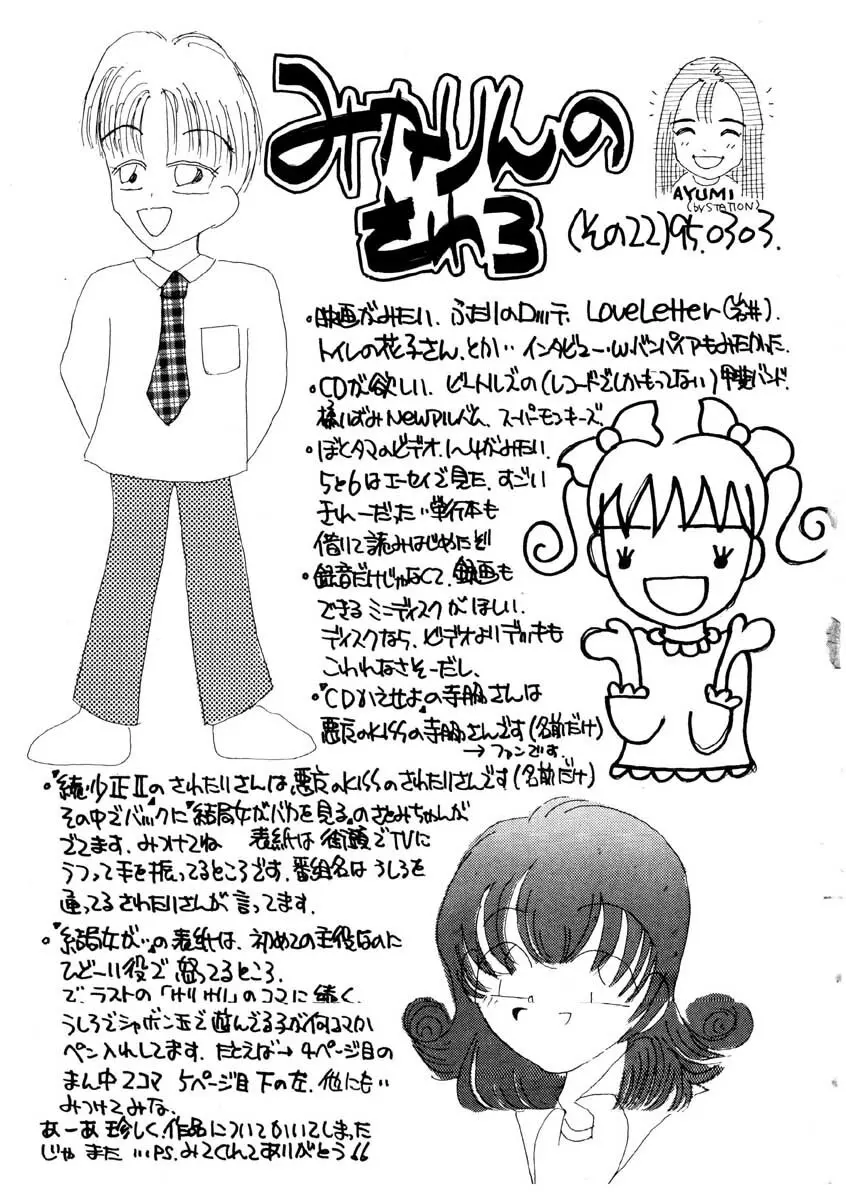 みなりんの
されろ
AYUMI
(by STATION)
(その22)95.0303.
・映画がみたい、ふたりのロッテ、LoveLetter(岩井).
トイレの花子さん、とか‥インタビュー・w・バンパイアもみたかった.
・CDが欲しい. ビートルズの(レコードでしかもってない)甲斐バンド.
Newアルバム、スーパーモンキーズ.
・ぼくタマのビデオ 1〜4がみたい.
5と6はエーセイで見た. すごい
きれーだった‥単行本も
借りて読みはじめたぞ
・録音だけじゃなくて、録画も
できるミニディスクがほしい.
ディスクなら、ビデオよりデッキも
こわれなさそーだし.
・"CDかえせよ"の寺脇さんは
悪京のKISSの寺脇さんです(名前だけ)
→ファンです.
・"続・少正II"のされたりさんは悪京のKISSのされたりさんです(名前だけ)
その中でバックに"結局女がバカを見る"のさとみちゃんが
でてます. みつけてね 表紙は 街頭でTVに
うつって手を振ってるところです. 番組名はうしろを
通ってるされたりさんが言ってます.
・"結局女が‥"の表紙は、初めての主役なのに
ひどーい役で怒ってるところ.
で、ラストの「けりけり」のコマに続く.
うしろでシャボン玉で遊んでる子が何コマか
ペン入れしてます. たとえば→4ページ目の
まん中2コマ 5ページ目下の左. 他にも‥
みつけてみな.
あーあ珍しく、作品についてかいてしまった
じゃ また …PS. みてくれてありがとう!!